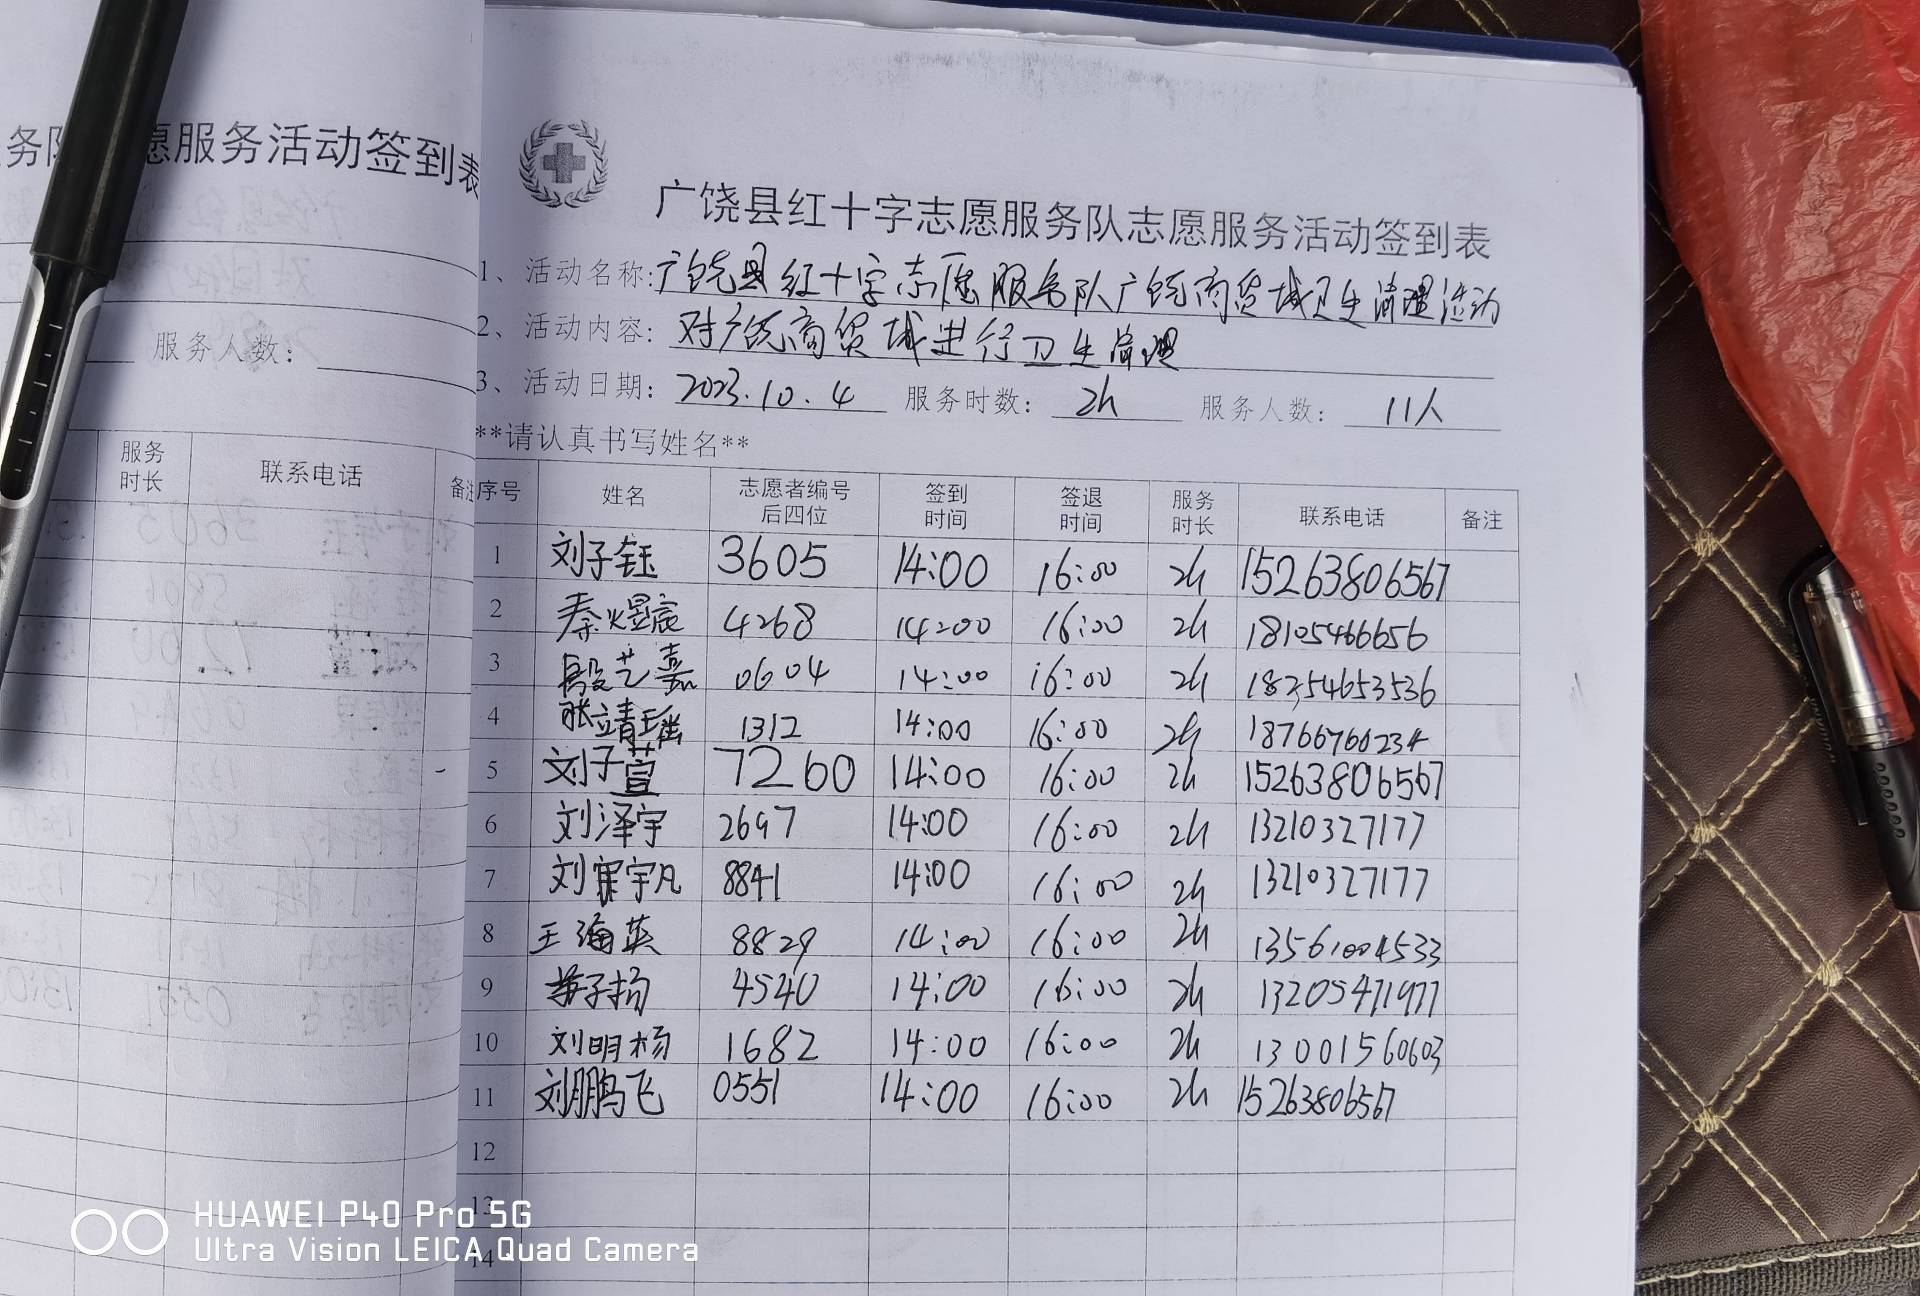 务队 愿服务活动签到表
服务人数：
服务时长 联系电话 备注
广饶县红十字志愿服务队志愿服务活动签到表
1、活动名称：广饶县红十字志愿服务队广饶商贸城卫生清理活动
2、活动内容：对广饶商贸城进行卫生清理
3、活动日期：2023.10.4 服务时数：2h 服务人数：11人
**请认真书写姓名**
序号 姓名 志愿者编号后四位 签到时间 签退时间 服务时长 联系电话 备注
1 刘子钰 3605 14:00 16:00 2h 15263806567
2 秦煜宸 4268 14:00 16:00 2h 18105466656
3 殷艺嘉 0604 14:00 16:00 2h 18254653536
4 张靖瑶 1312 14:00 16:00 2h 18766760234
5 刘子萱 7260 14:00 16:00 2h 15263806567
6 刘泽宇 2697 14:00 16:00 2h 13210327177
7 刘宇凡 8841 14:00 16:00 2h 13210327177
8 王海英 8829 14:00 16:00 2h 13561004533
9 子扬 4540 14:00 16:00 2h 13205471977
10 刘明杨 1682 14:00 16:00 2h 13001560603
11 刘鹏飞 0551 14:00 16:00 2h 15263806567
12
13
14
HUAWEI P40 Pro 5G
Ultra Vision LEICA Quad Camera